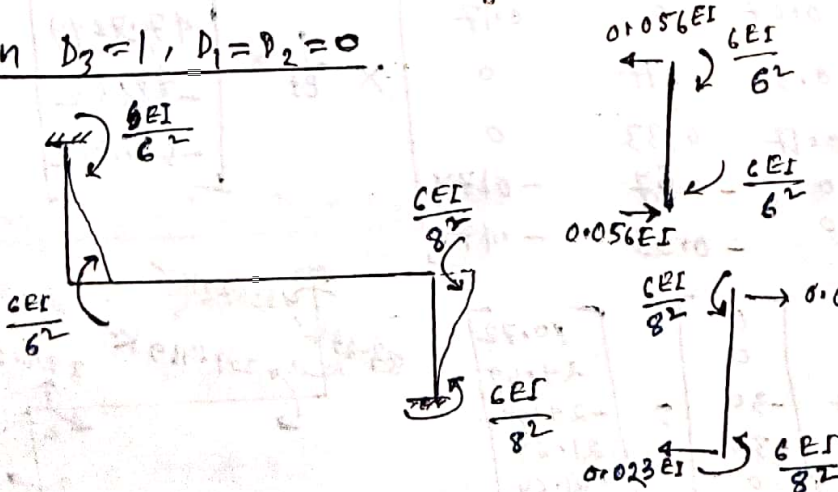 n D₃=1, D₁=D₂=0.
6EI/6²
6EI/6²
6EI/8²
6EI/8²
0.056EI
6EI/6²
6EI/6²
0.056EI
6EI/8²
0.023EI
6EI/8²